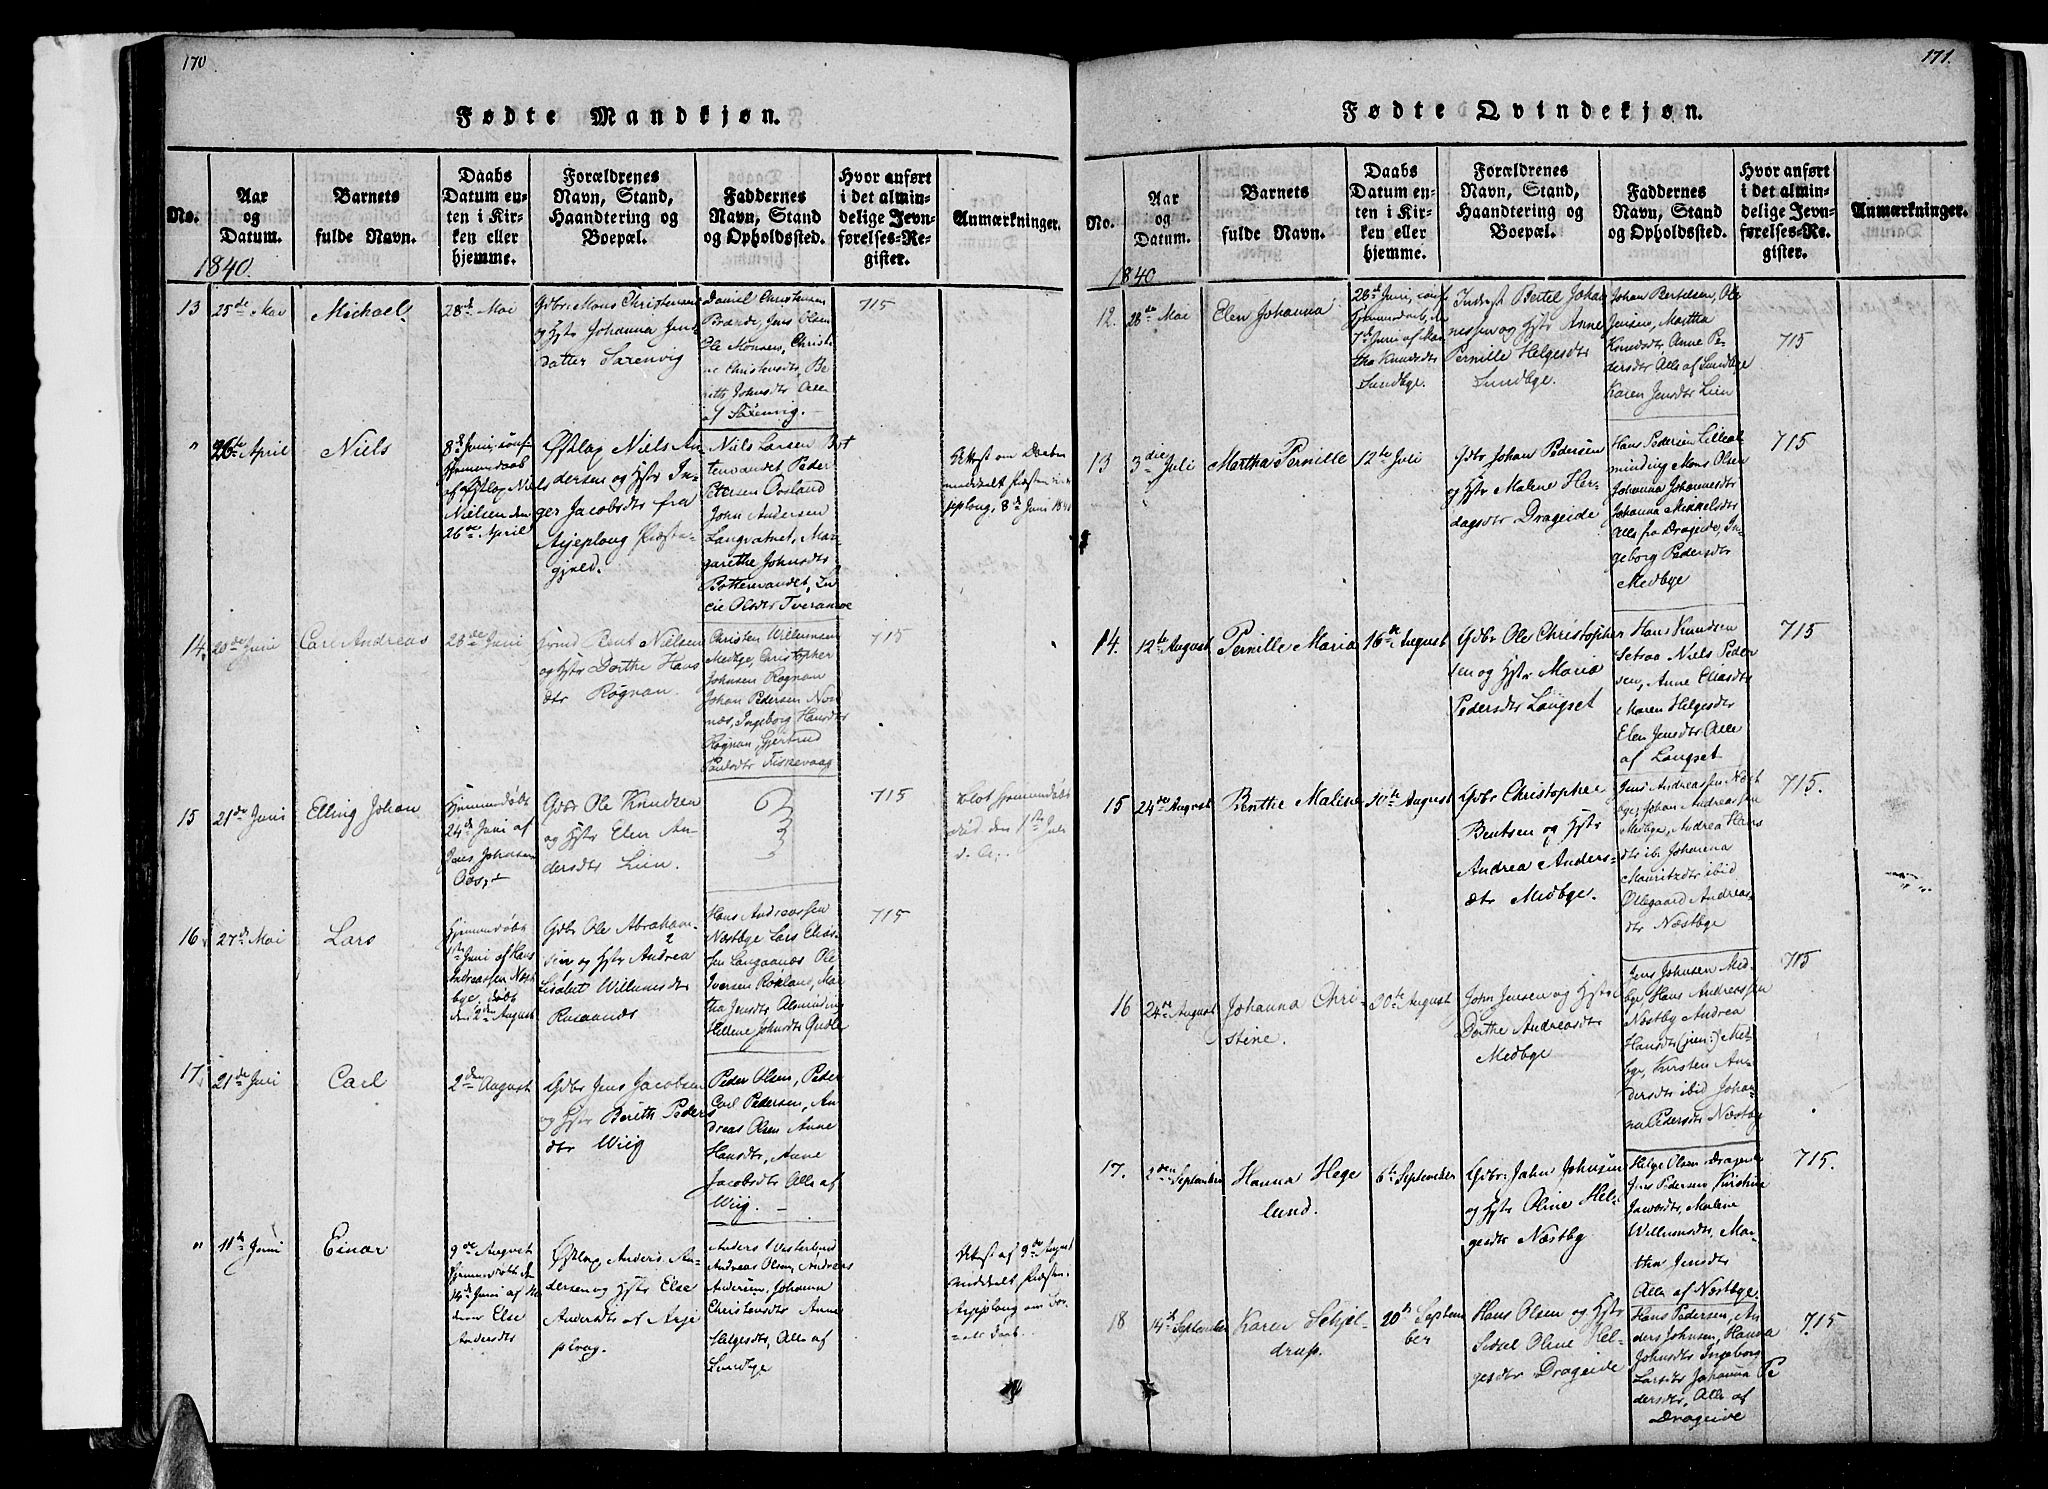 170
Fødte Mandkjøn.
No.
Aar
og
Datum.
Barnets
fulde Navn.
Daabs
Datum en-
ten i Kir-
ken eller
hjemme.
Forældrenes
Navn, Stand,
Haandtering og
Boepæl.
Faddernes
Navn, Stand
og Opholdssted.
Hvor anført
i det almin-
delige Jevn-
førelses-Re-
gister.
Anmærkninger.
1840.
13
25de Mai
Michael
28de Mai
Gdbr: Mons Christensen
og Hstr Johanna Jens
datter Saxenvig
Daniel Christensen
Brænde, Jens Olsen
Ole Monsen, Christi
ne Christensdtr, Be
rith Johnsdtr Alle
af Saxenvig.
715
"
26de April
Niels
8de Juni, conf
Hjemmedaab
af Østlap Niels
Nielsen den
26de April
Østlap Niels An-
dersen og Hstr In-
ger Jacobsdtr fra
Arjeploug Præste-
gjeld.
Niels Larsen Bot
tenvandet, Peder
Petersen Oosland
John Andersen
Langvatnet, Mar
garethe Johnsdtr
Bottenvandet
Olsdtr Tveraamoe
Attest om Daaben
meddeelt Præsten
jeploug, 8de Juni 1840
14.
20de Juni
Carl Andreas
28de Juni
Bent Nielsen
og Hstr Dorthe Hans
dtr Rognan.
Christen Willumsen
Medbye, Christopher
Johnsen Rognan
Johan Pedersen Nord
næs, Ingeborg Hansdtr
Rognan, Gjertrud
Paulsdtr Fiskevaag
715
15
21de Juni
Elling Johan
Hjemmedøbt
24de Juni af
Jens Johnsen
Gdbr Ole Knudsen
og Hstr Elen An-
dersdtr Lien.
715
blot hjemmedøbt
død den 1ste Juli
d. A.
16
27de Mai
Lars
Hjemmedøbt
1ste Juni af Hans
Andreassen Næst
bye, døbt
den 2den August
Gdbr Ole Abraham-
sen og Hstr Andrea
Lisabet Willumsdtr
Rusaanæs
Hans Andreassen
Næstbye Lars Elias-
sen Langaanæs Ole
Iversen Røkland, Mar
tha Jensdtr Alminding
Hellene Johnsdtr
715
17
21de Juni
Carl
2den August
Gdbr Jens Jacobsen
og Hstr Berith Peders
dtr Wiig
Peder Olsen, Peder
Carl Pedersen, An
dreas Olsen Anne
Hansdtr, Anne
Jacobsdtr Alle af
Wiig.
"
11te Juni
Einar
9de August
Hjemmedøbt den
14de Juni af Mo
deren Else
Andersdtr
Østlap Anders An-
dersen og Hstr Else
Andersdtr af Arje
ploug.
Anders Westerlund
Andreas Olsen, Andreas
Andersen, Johanna
Christensdtr Anne
Helgesdtr, Alle af
Sundbye
Attest af 9de August
meddeelt Præsten i
Arjeploug om
Daab.
171.
Fødte Qvindekjøn.
No.
Aar
og
Datum.
Barnets
fulde Navn.
Daabs
Datum en-
ten i Kir-
ken eller
hjemme.
Forældrenes
Navn, Stand,
Haandtering og
Boepæl.
Faddernes
Navn, Stand
og Opholdssted.
Hvor anført
i det almin-
delige Jevn-
førelses-Re-
gister.
Anmærkninger.
1840
12.
28de Mai
Elen Johanna
28de Juni, conf
Hjemmedaab, den
7de Juni af Mar
tha Knudsdtr
Sundbye.
Inderst Bertel Johan
nessen og Hstr Anne
Pernille Helgesdtr
Sundbye.
Johan Bertelsen, Ole
Jensen, Martha
Knudsdtr Anne Pe-
dersdtr Alle af Sundbye
Karen Jensdtr Lien
715
13
3die Juli
Martha Pernille
12te Juli
Gdbr Johan Pedersen
og Hstr Malene Her-
dagsdtr Drageide
Hans Pedersen Lilleal
minding Mons Olsen
Johanna Johannesdtr
Johanna Mikkelsdtr
Alle fra Drageide, In-
geborg Pedersdtr
Medbye
715
14.
12te August
Pernille Maria
16de August
Gdbr Ole Christopher
sen og Hstr Maria
Pedersdtr Langset
Hans Knudsen
Setsaa Niels Peder
sen, Anne Eliasdtr
Maren Helgesdtr
Elen Jensdtr Alle
af Langset
715
15
24de August
Benthe Malene
30te August
Gdbr Christopher
Bentsen og Hstr
Andrea Anders-
dtr Medbye.
Jens Andreassen Næst
bye, Johan Andreassen
Medbye, Andrea Hans
dtr ib. Johanna
Mauritzdtr ibid
Ollegaard Andreas-
dtr Næstbye
715.
16
24de August
Johanna Chri-
stine.
30te August
John Jensen og Hstr
Dorthe Andreasdtr
Medbye
Jens Johnsen Med-
bye Hans Andreassen
Næstby Andrea
Hansdtr (jun:) Med-
bye, Kirsten An-
dersdtr ibid Johan-
na Pedersdtr Næstby
715
17.
2den September
Hanna Hege
lund.
6te September
Gdbr: John Johnsen
og Hstr Oline Hel-
gesdtr Næstby
Helge Olsen Drageide
Jens Pedersen Kirstine
Malene
Willumsdtr, Mar-
tha Jensdtr
Alle af Næstbye.
715.
18
14de September
Karen Schjel-
drup.
20de Septem
ber
Hans Olsen og Hstr
Sidsel Oline Hel-
gesdtr Drageide
Hans Pedersen, An
ders Johnsen, Hanna
Johnsdtr Ingeborg
Larsdtr Johanna Pe
dersdtr, Alle af
Drageide
715